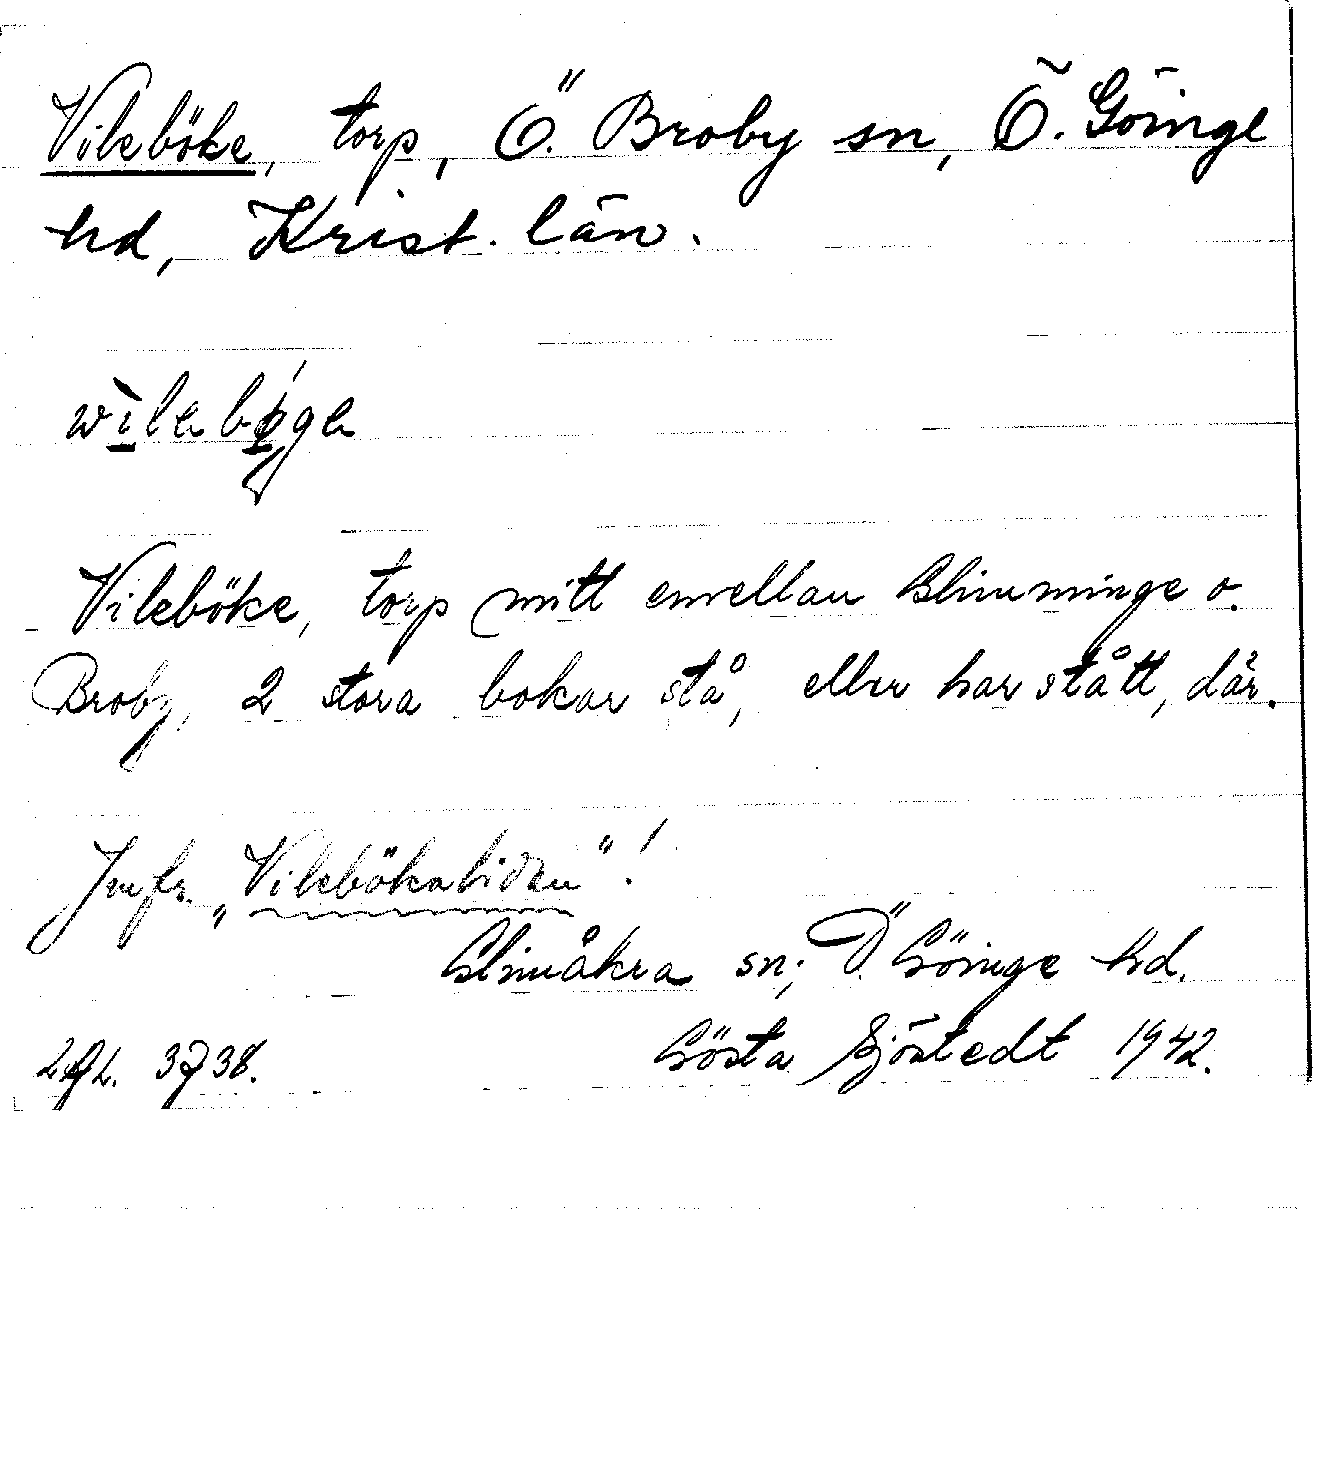 Vileböke, torp, Ö. Broby sn, Ö. Göinge
hd, Krist. län.
Vileböke, torp mitt emellan Glimminge o.
Broby, 2 stora bokar stå, eller har stått, där.
Jmfr. „Vilebökabiden" !
Glimåkra sn; Ö. Göinge hd.
Gösta Sjöstedt 1942.